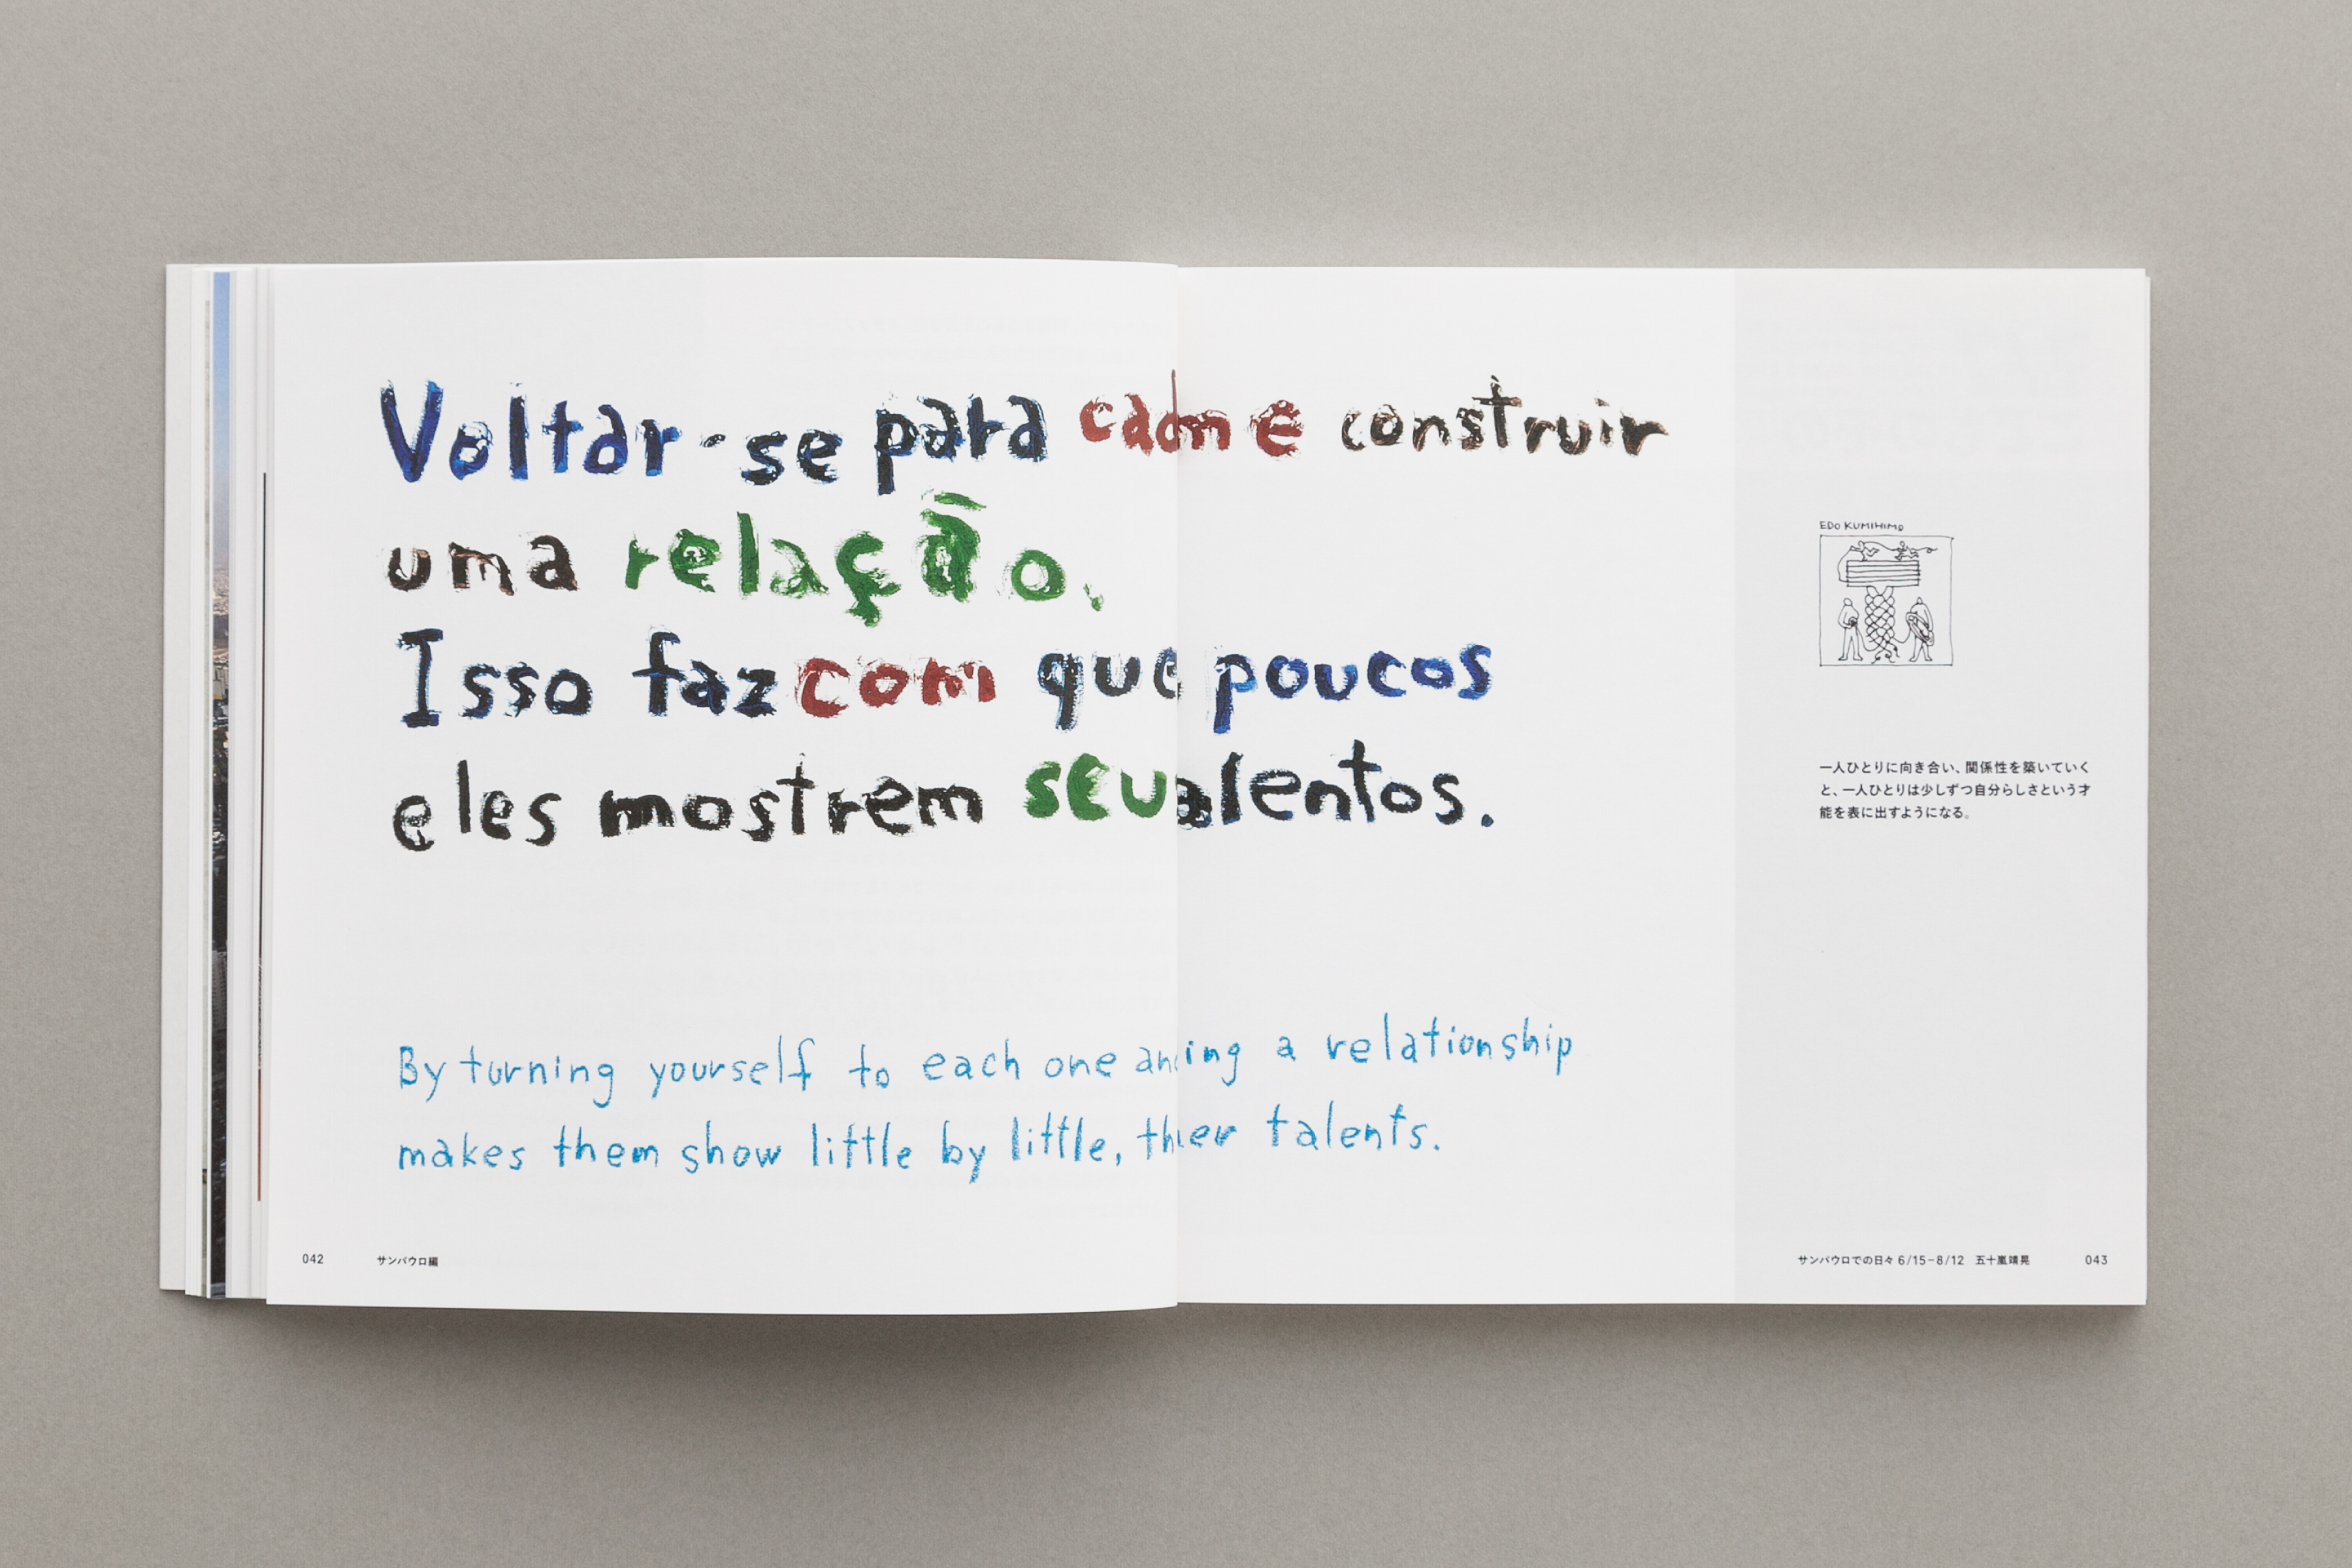 Voltar-se para construir
uma relação.
Isso faz com que poucos
eles mostrem talentos.
By turning yourself to each one a relationship
makes them show little by little, talents.
EDO KUMIHIMO
一人ひとりに向き合い、関係性を築いていく
と、一人ひとりは少しずつ自分らしさという才
能を表に出すようになる。
042 サンパウロ編
サンパウロでの日々 6/15-8/12 五十嵐靖晃 043